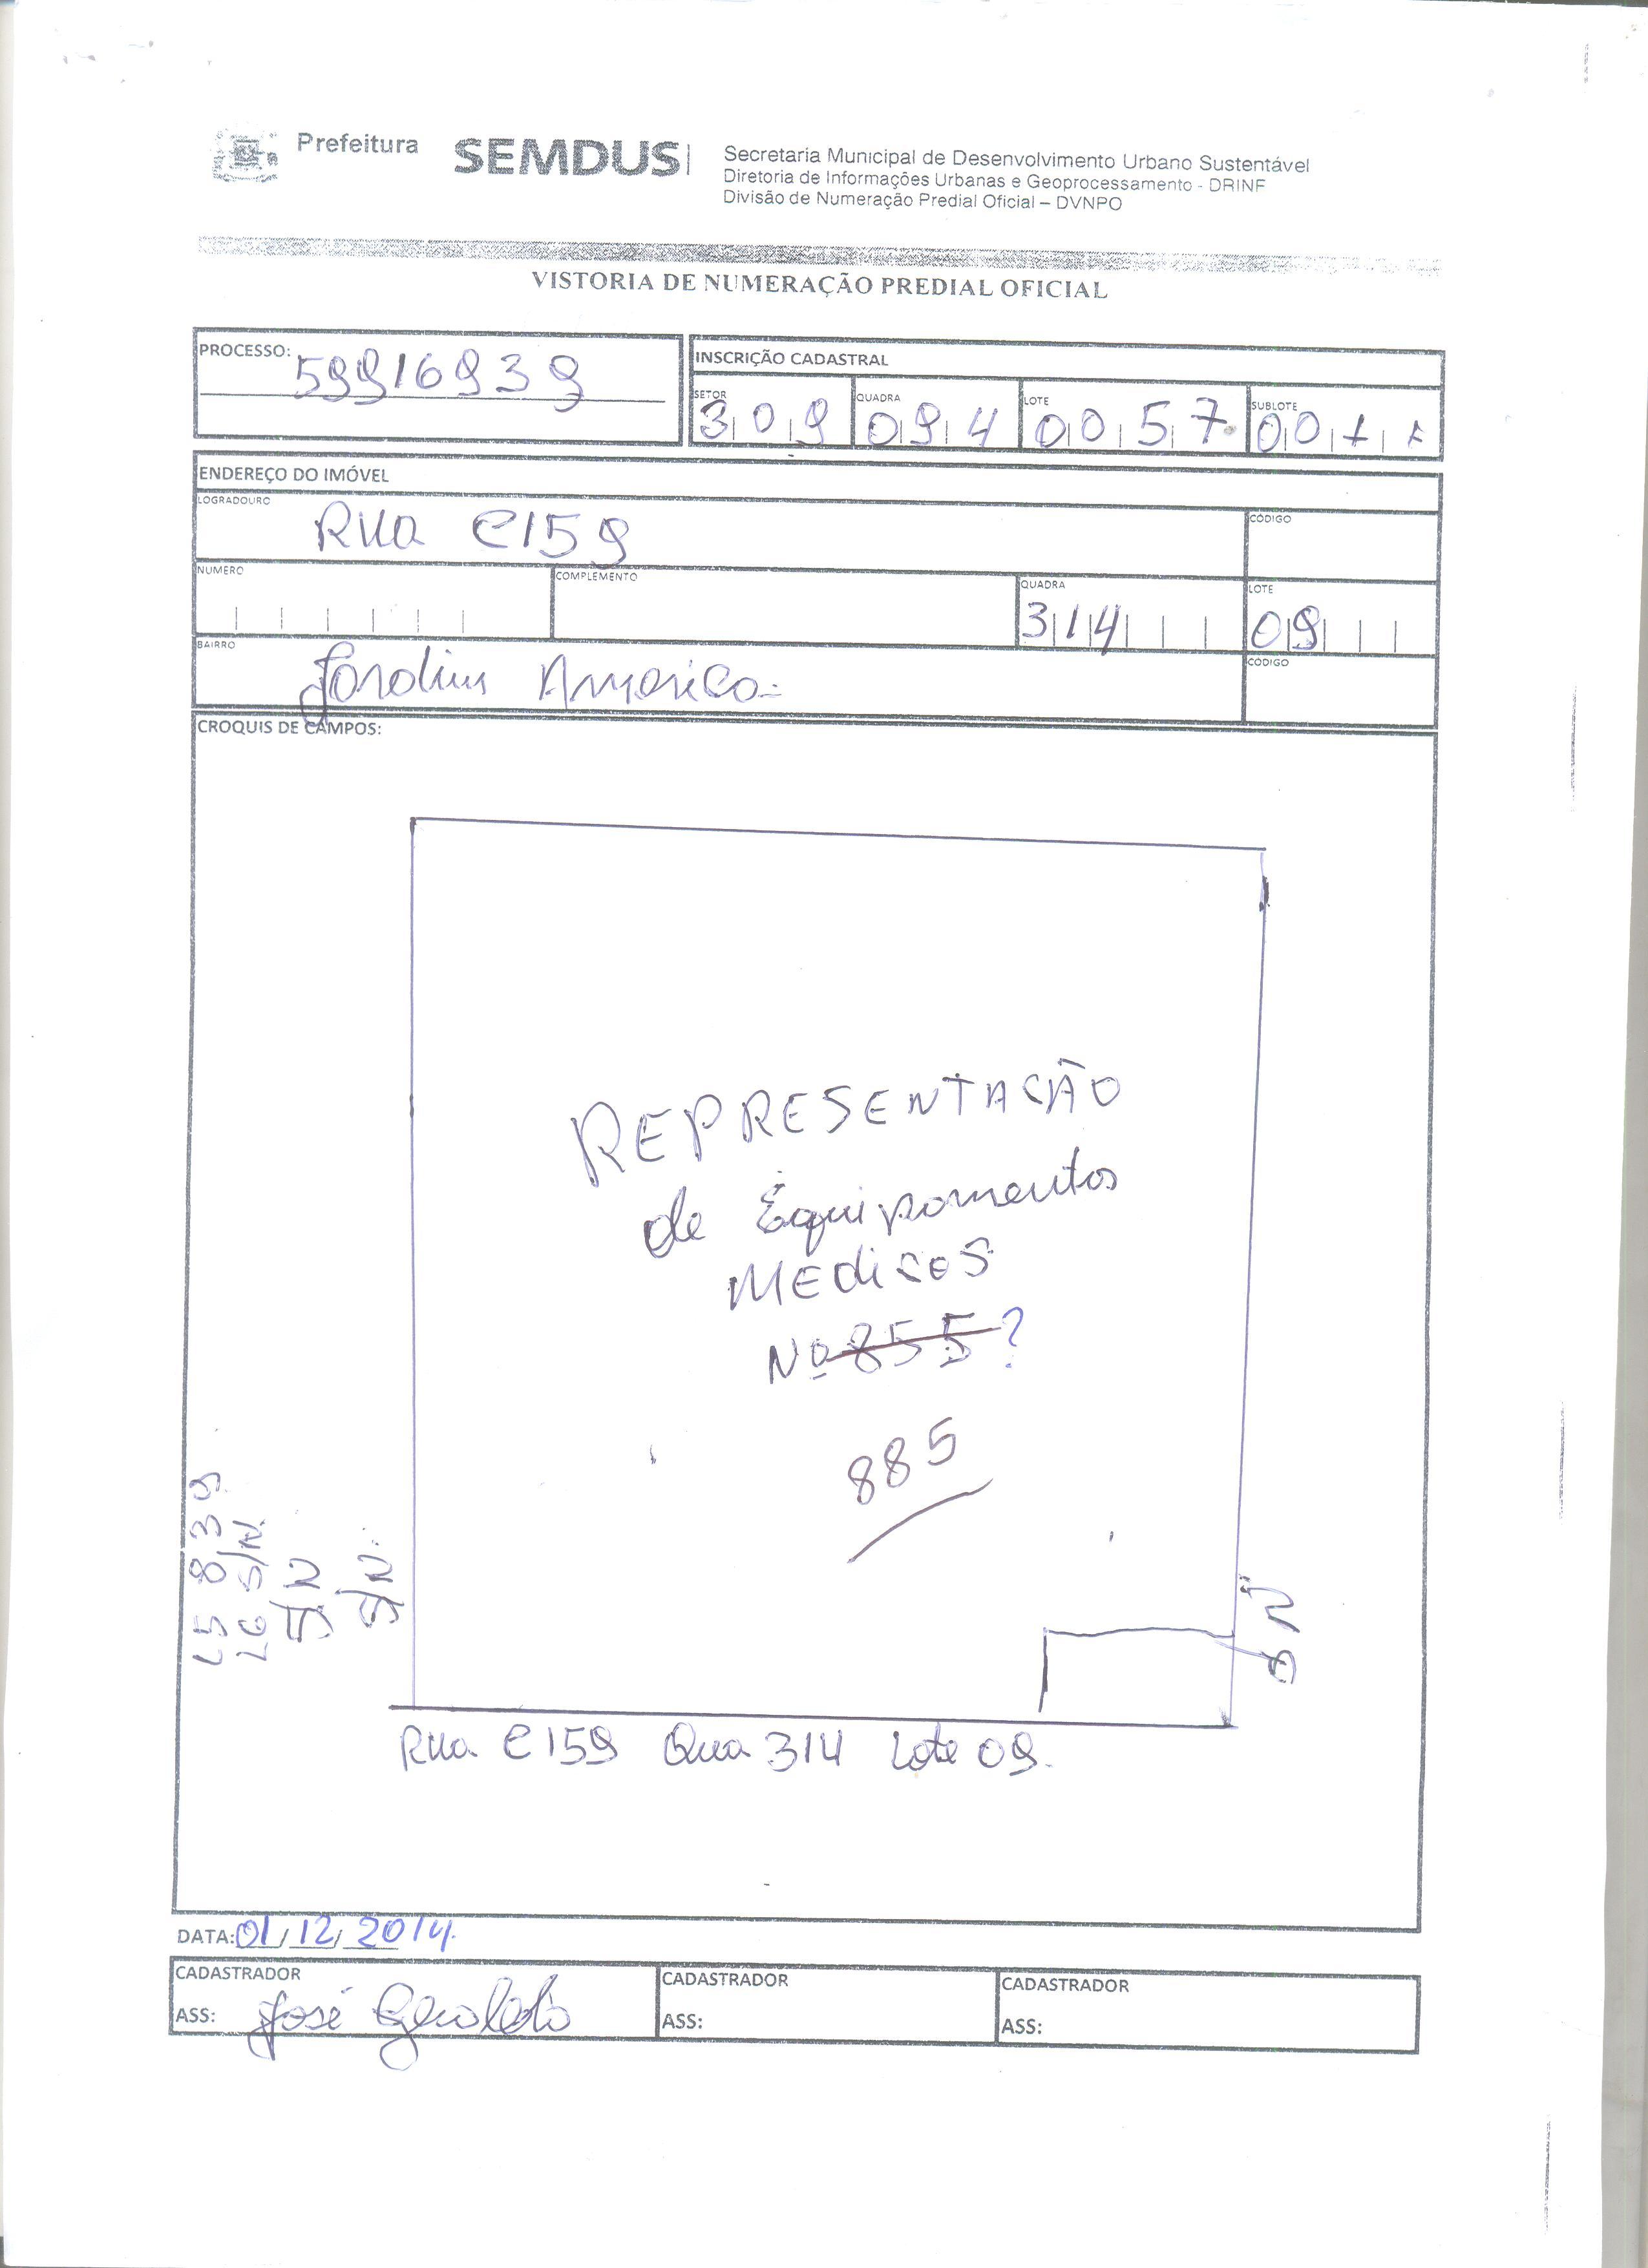 Prefeitura SEMDUS
Secretaria Municipal de Desenvolvimento Urbano Sustentável
Diretoria de Informações Urbanas e Geoprocessamento - DRINF
Divisão de Numeração Predial Oficial – DVNPO
VISTORIA DE NUMERAÇÃO PREDIAL OFICIAL
PROCESSO: 59916939
INSCRIÇÃO CADASTRAL
SETOR QUADRA LOTE SUBLOTE
309 094 0057 00
ENDEREÇO DO IMÓVEL
LOGRADOURO CÓDIGO
Rua C159
NUMERO COMPLEMENTO QUADRA LOTE
314 09
BAIRRO CÓDIGO
Jardim America
CROQUIS DE CAMPOS:
REPRESENTAÇÃO
de Equipamentos
MEDicos
Nº 855?
885
L5 839
L6 S/N.
S/N
S/N.
SN
Rua C159 Qua 314 Lote 09.
DATA: 01/12/2014.
CADASTRADOR CADASTRADOR CADASTRADOR
ASS: José Geraldo ASS: ASS: